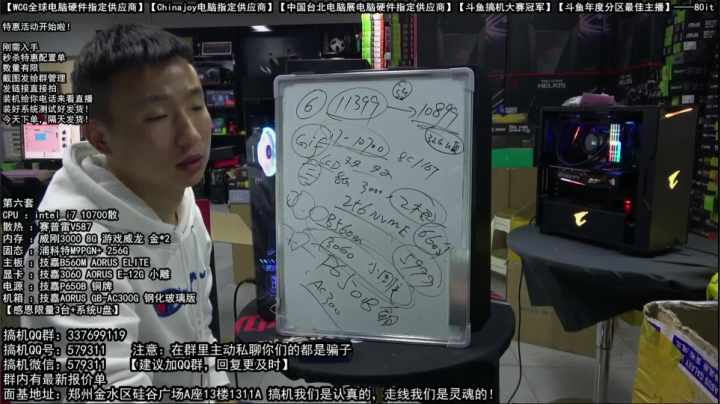 【WCG全球电脑硬件指定供应商】【Chinajoy电脑指定供应商】【中国台北电脑展电脑硬件指定供应商】【斗鱼搞机大赛冠军】【斗鱼年度分区最佳主播】——80it
特惠活动开始啦!
刚需入手
秒杀特惠配置单
数量有限
截图发给群管理
发链接直接拍
装机给你电话来看直播
装好系统测试好发货!
今天下单,隔天发货!
6 11399 10899
i7-10700 8C16T
8G 3000
256 NVME
B560m
3060
5999
P650B
AC300
HELIOS
AORUS
第六套
CPU : intel i7 10700散
散热 : 赛普雷V587
内存 : 威刚3000 8G 游戏威龙 金*2
固态 : 浦科特M9PGN+ 256G
主板 : 技嘉B560M AORUS ELITE
显卡 : 技嘉3060 AORUS E-12G 小雕
电源 : 技嘉P650B 铜牌
机箱 : 技嘉AORUS GB-AC300G 钢化玻璃版
【感恩限量3台+系统U盘】
搞机QQ群: 337699119
搞机QQ号: 579311 注意: 在群里主动私聊你们的都是骗子
搞机微信: 579311 【建议加QQ群,回复更及时】
群内有最新报价单
面基地址: 郑州金水区硅谷广场A座13楼1311A 搞机我们是认真的,走线我们是灵魂的!